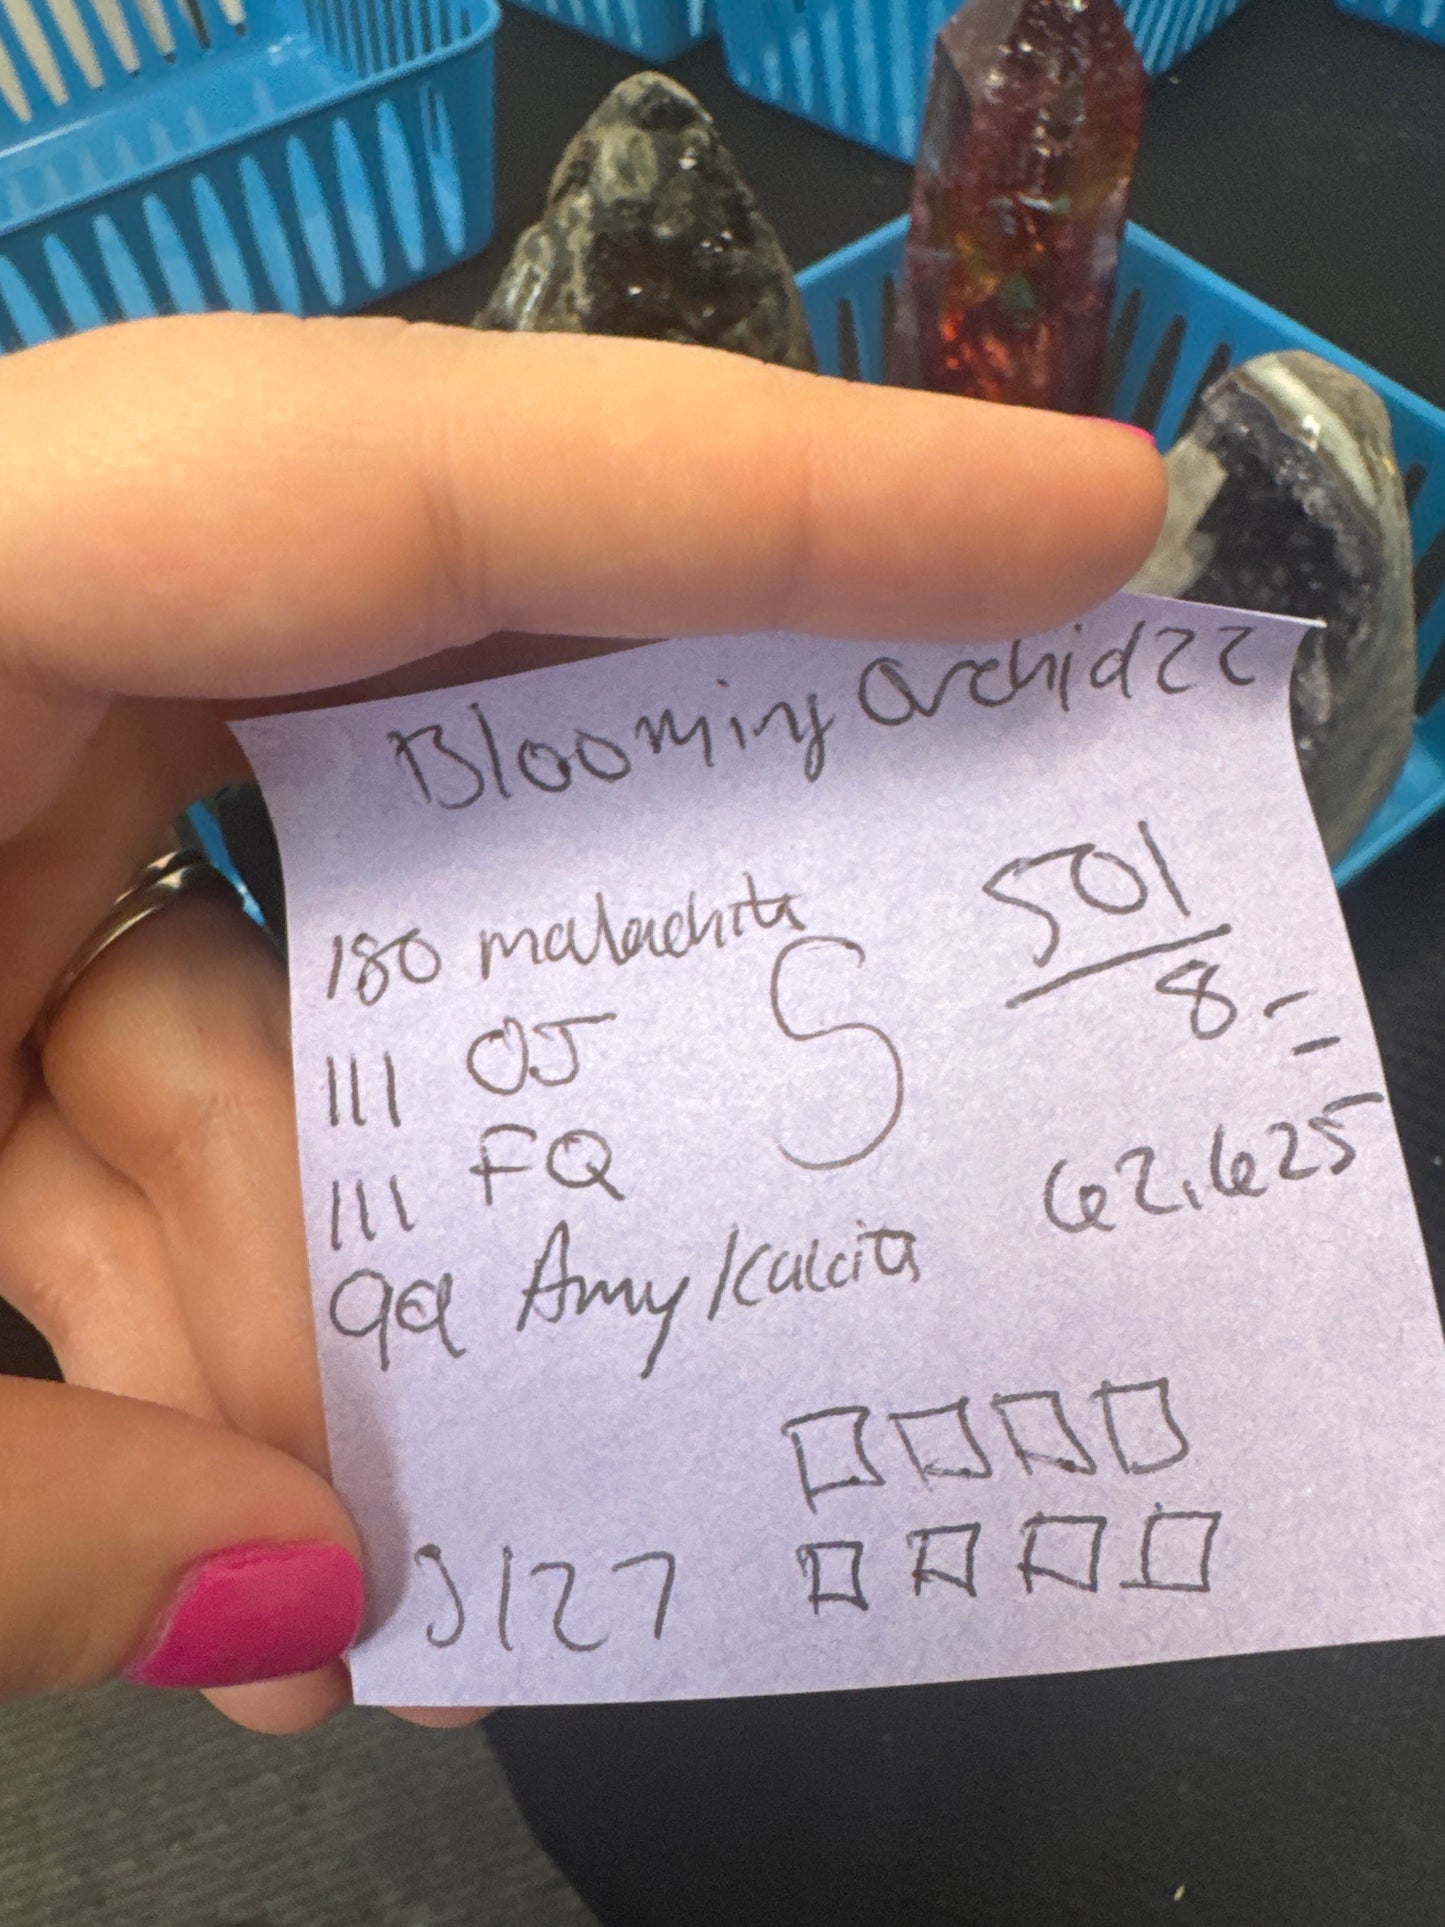 Blooming Orchid22
180 malachite
111 OJ
111 FQ
99 Amy/Calcite
S
501/8 =
62.625
3/27